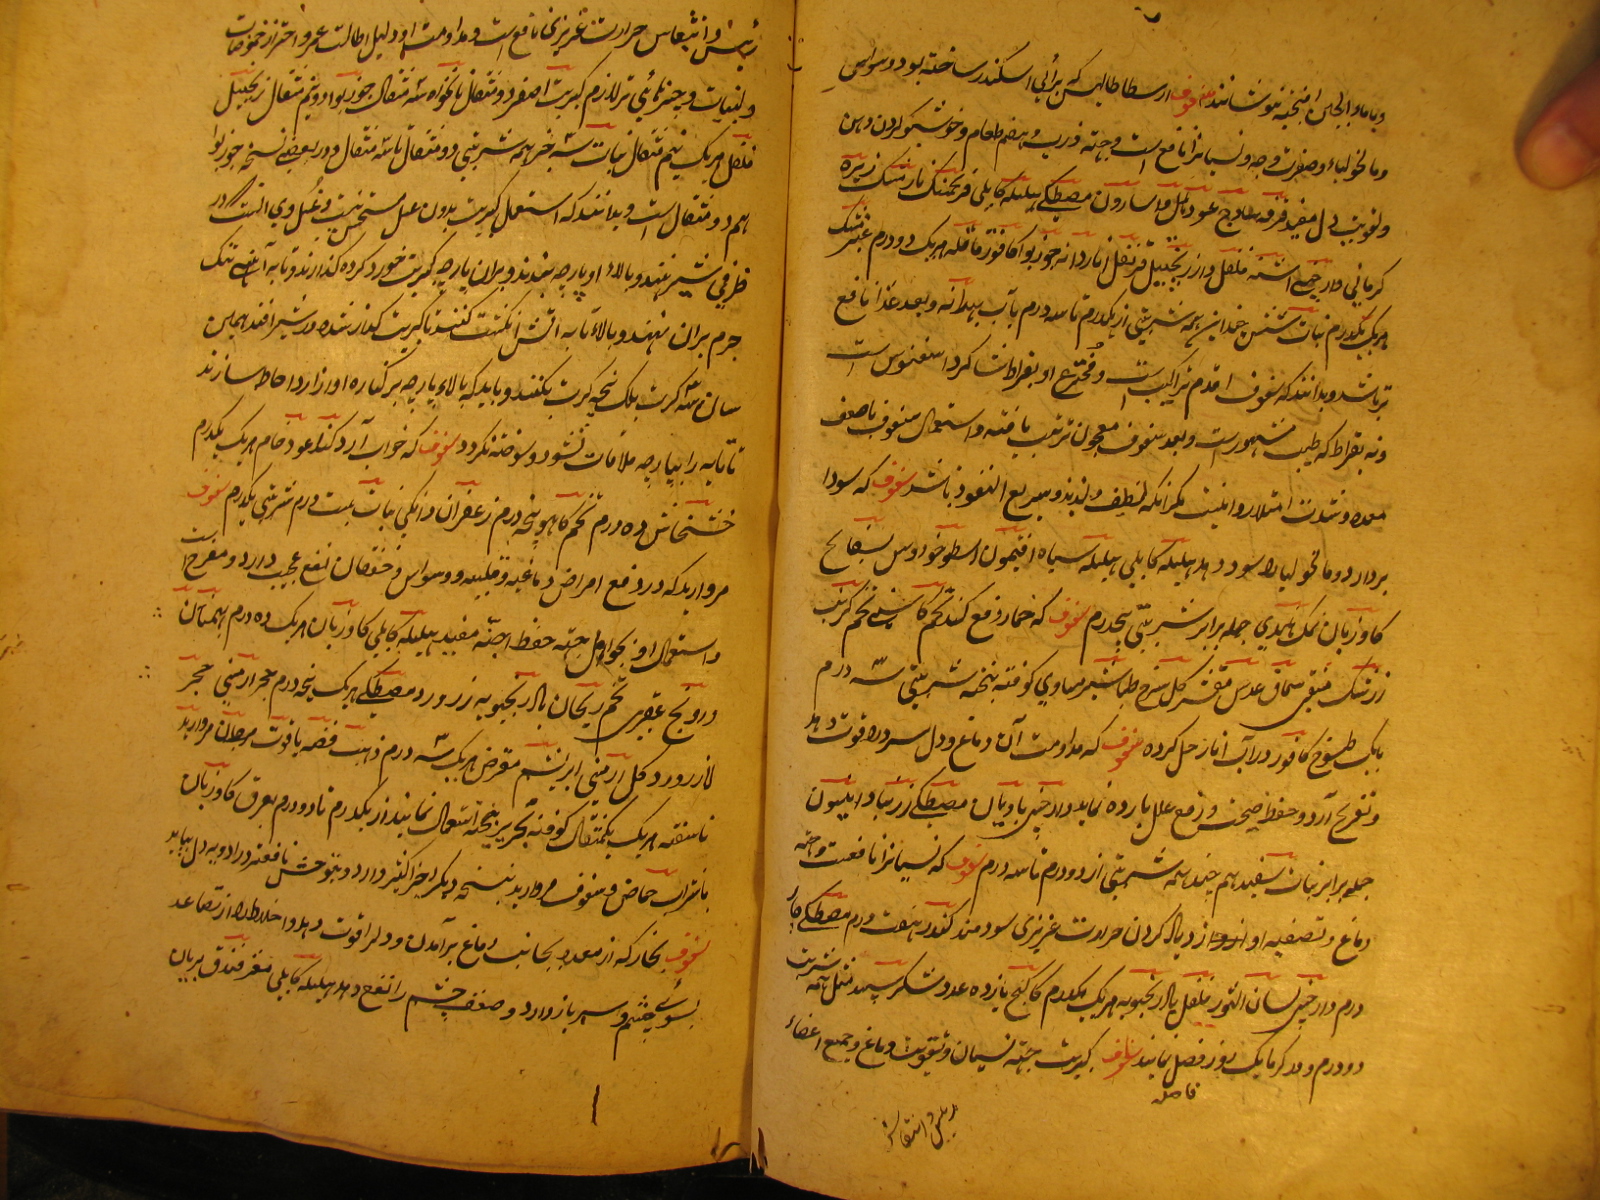 و با ماء الجبن آمیخته بنوشانند سفوف ارسطاطالیس که برای اسکندر ساخته بود وسواس
و مالیخولیا و صفرت وجه و نسیانرا نافع است و جهة فربه و هضم طعام و خوشبو کردن دهن
و تقویت دل مفید قرفه ساذج عود بل و اسارون مصطکی هلیله کابلی فرنجمشک نارمشک زیره
کرمانی دارچینی اشنه فلفل دارز زنجبیل قرنفل انار دانه جوزبوا کافور قاقله هریک دو درم عنبر مشک
هریک یکدرم نبات شش چندان همه شربتی از یکدرم تا سه درم بآب بهدانه و بعد غذا نافع
تر باشد و بدانند که سفوف اقدم تراکیبست و مخترع او بقراط شاکرد اسقلنیوس است
و نه بقراط که طبیب مشهورست و بعد سفوف معجون ترتیب یافته و استعمال سفوف با ضعف
معده و شدت امتلا روا نیست مکر آنکه لطیف و لذیذ و سریع النفوذ باشد سفوف که سودا
بردارد و مالیخولیا را سود دهد هلیله کابلی هلیله سیاه افتیمون اسطوخودوس بسفایج
کاوزبان نمک هندی جمله برابر شربتی پنجدرم سفوف که خمار دفع کند تخم کاسنی تخم کرنب
زرشک منقی سماق عدس مقشر کل سرخ طباشیر مساوی کوفته بیخته شربتی سه درم
بایک طسوج کافور در آب انار حل کرده سفوف که مداومت آن دماغ و دل سرد را قوت دهد
و تفریح آرد و حفظ صحت و رفع علل بارده نماید دارچینی بادیان مصطکی زرنباد انیسون
جمله برابر نبات سفید هم چند همه شربتی از دو درم تا سه درم سفوف که نسیانرا نافعست و جهة
دماغ و تصفیه او و زیاد کردن حرارت غریزی سودمند کندر هفت درم مصطکی چار
درم دارچینی لسان الثور فلفل بادرنجبویه هریک یکدرم کابلج یازده عدد شکر سپید مثل همه شربت
دو درم و در کرما یک روز فصل نمایند سفوف کبریت جهة نسیان و تقویت دماغ و جمیع اعضاء
فاصله
رئیس و انتعاش حرارت غریزی نافع است و مداومت او دلیل اطالت عمر و احتراز از حموضات
و لبنیات و چیزهائی تر لازم کبریت اصفر دو مثقال نانخواه سه مثقال جوزبوا دو نیم مثقال زنجبیل
فلفل هریک نیم مثقال نبات سه جز همه شربتی دو مثقال تا سه مثقال و در بعضی نسخه جوزبوا
هم دو مثقال است و بدانند که استعمال کبریت بدون غسل مستحسن نیست و غسل وی آنست که در
ظرفی شیر نهند و بالای او پارچه ببندند و بران پارچه کبریت خورد کرده کذارند و تابه آهنی تنک
جرم بران نهند و بالای تابه آتش انکشت کنند تا کبریت کداز شده در شیر افتد همین
سان سه کرت بلکه پنج کرت بکنند و باید که بالای پارچه بر کناره او از آرد احاطه سازند
تا تابه را بپارچه ملاقات نشود و سوخته نکردد سفوف که خواب آرد کندر عود خام هریک یکدرم
خشخاش ده درم تخم کاهو پنج درم زعفران دانکی نبات بست درم شربتی یکدرم سفوف
مروارید که در دفع امراض دماغیه و قلبیه و وسواس و خفقان نفع عجیب دارد و مفرح است
و استعمال او جهة حفظ اجنه مفید هلیله کابلی کاوزبان هریک ده درم بهمنان
درونج عقربی تخم ریحان بادرنجبویه زرورد مصطکی هریک پنج درم حجر ارمنی حجر
لازورد کل ارمنی ابریشم مقرض هریک سه درم ذهب فضه یاقوت مرجان مروارید
ناسفته هریک یکمثقال کوفته بحریر بیخته استعمال نمایند از یکدرم تا دو درم بعرق کاوزبان
یا شراب حماض و سفوف مروارید بنسخه دیکر اجزا کثیر دارد و بتوحش نافعتر در ادویه دل بیاید
سفوف بخار که از معده بجانب دماغ برآمدن و دلرا قوت دهد و اخلاط را از تصاعد
بسوی چشم و سر باز دارد و ضعف چشم را نفع دهد هلیله کابلی مغز فندق بریان